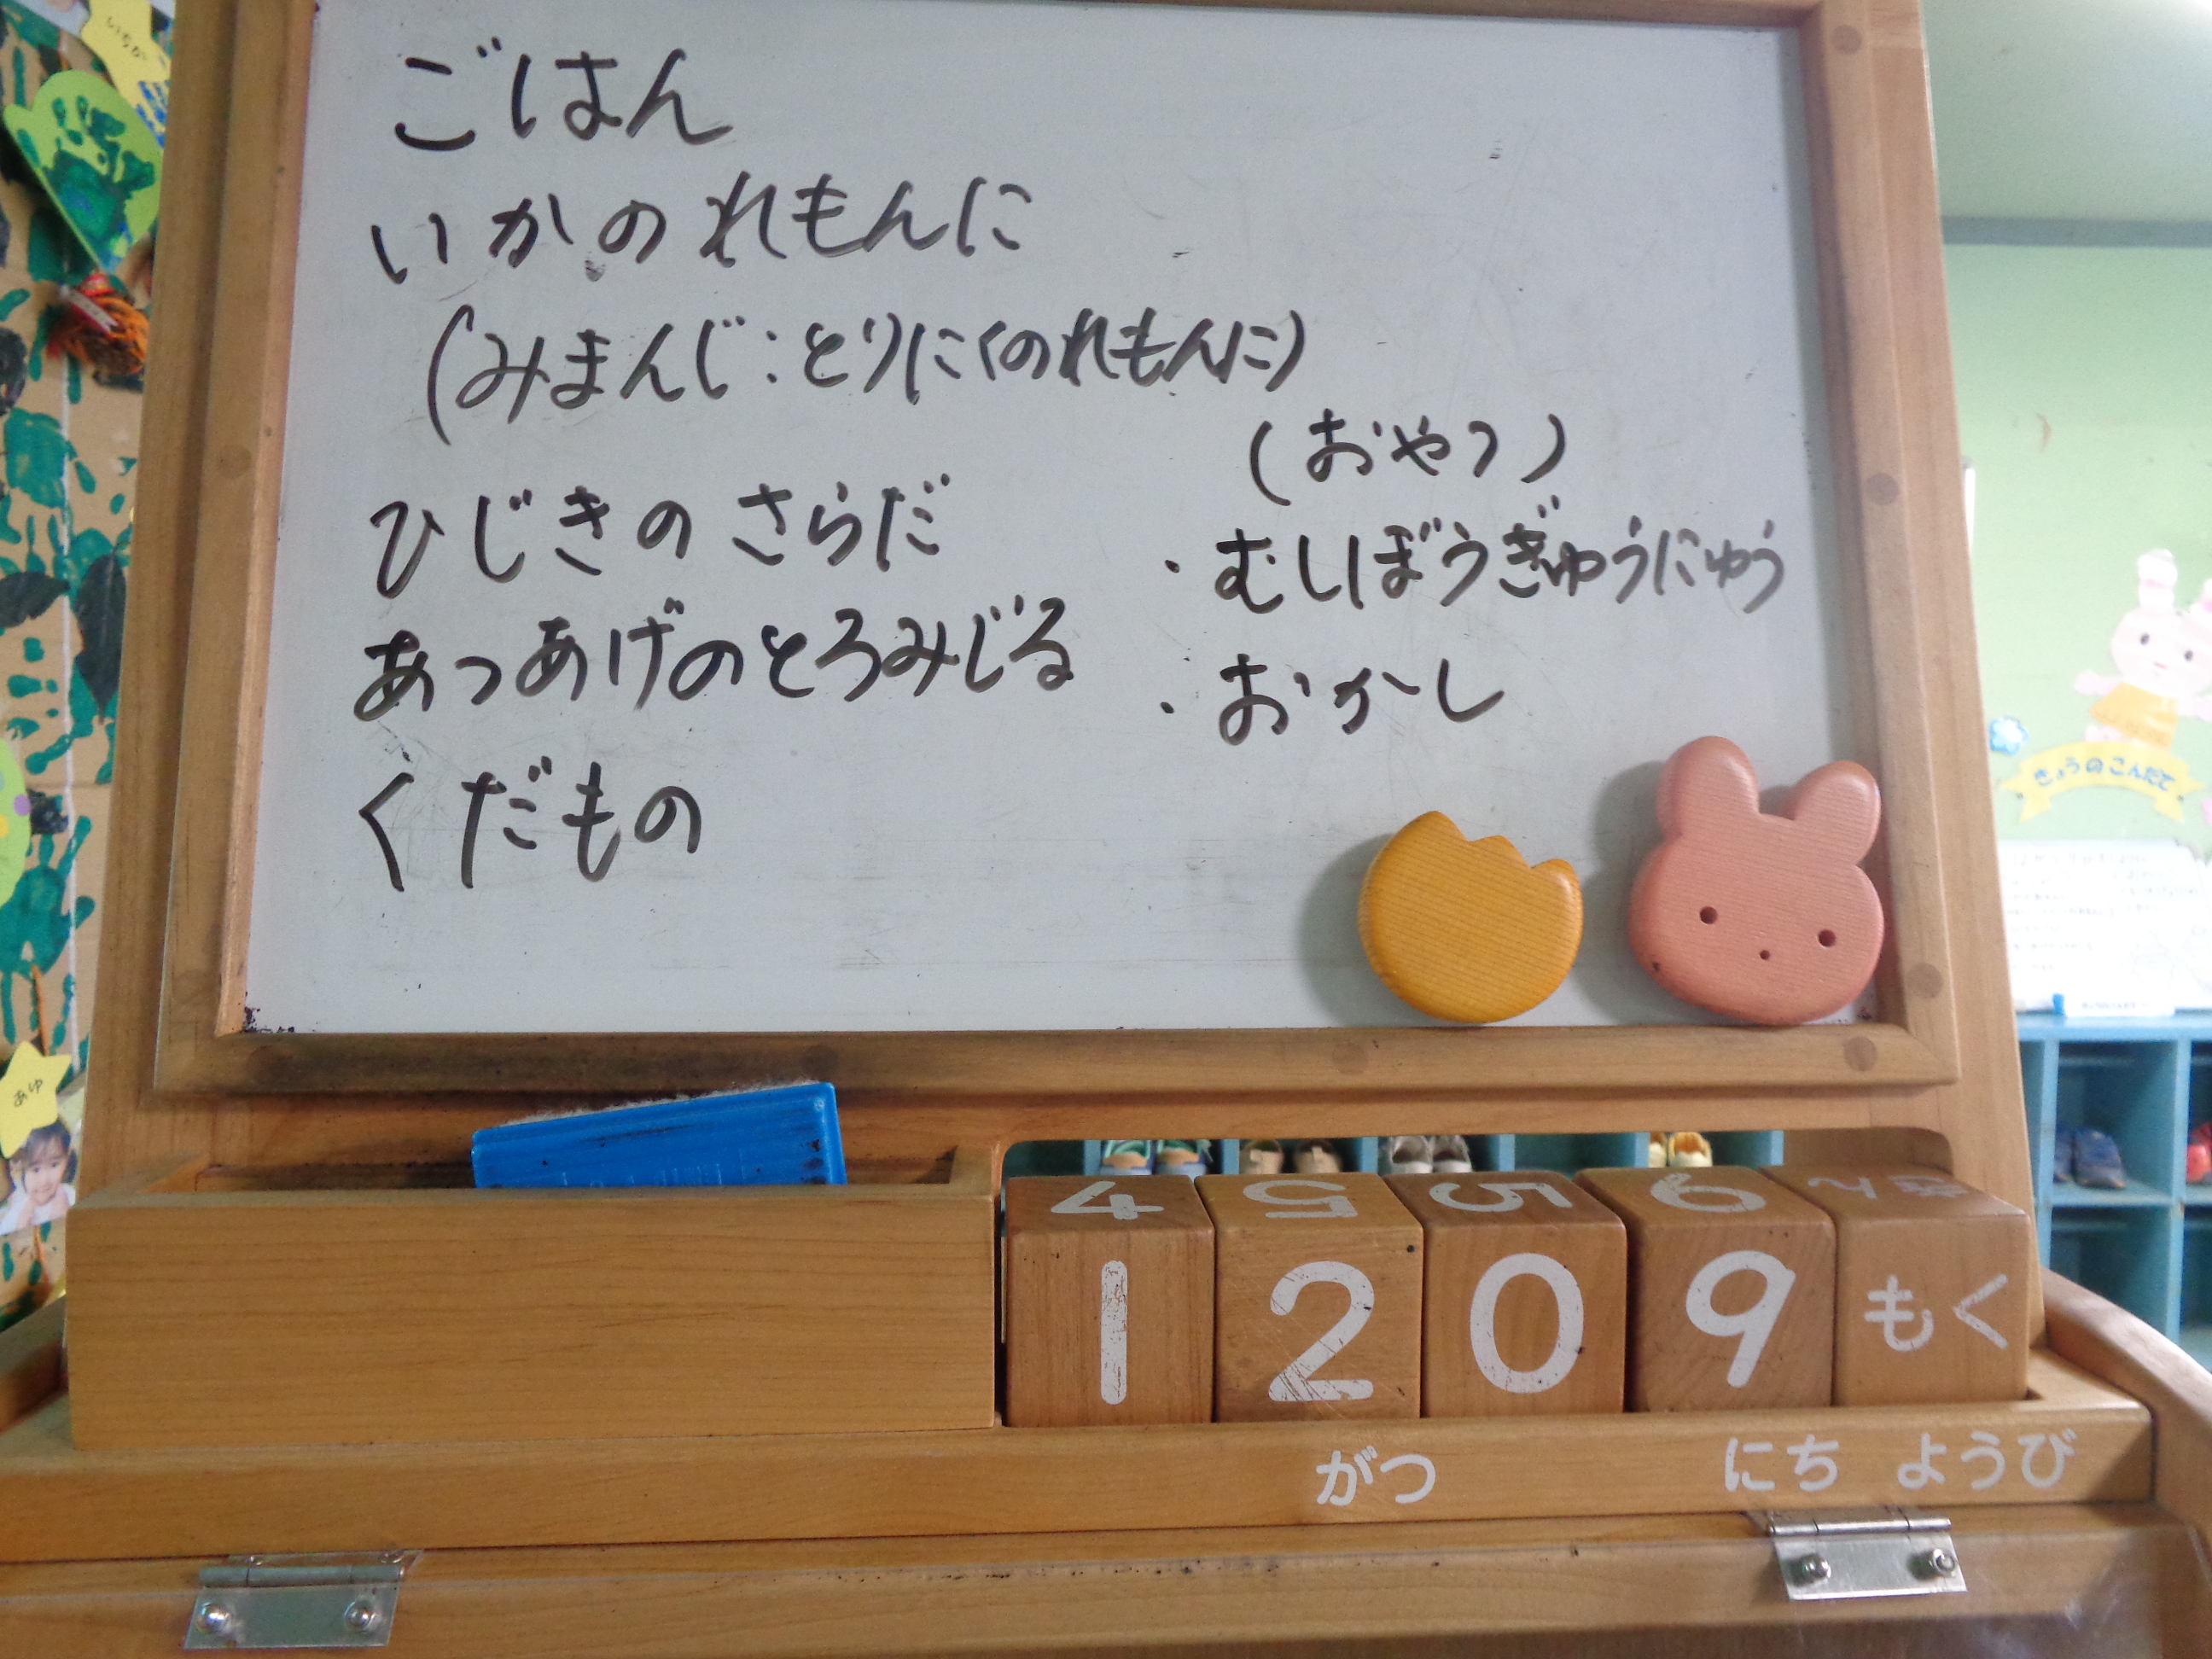 ごはん
いかのれもんに
(みまんじ:とりにくのれもんに)
ひじきのさらだ
あつあげのとろみじる
くだもの
(おやつ)
・むしぼうぎゅうにゅう
・おかし
きょうのこんだて
いちか
あゆ
4 5 5 6
1 2 0 9 もく
がつ にち ようび